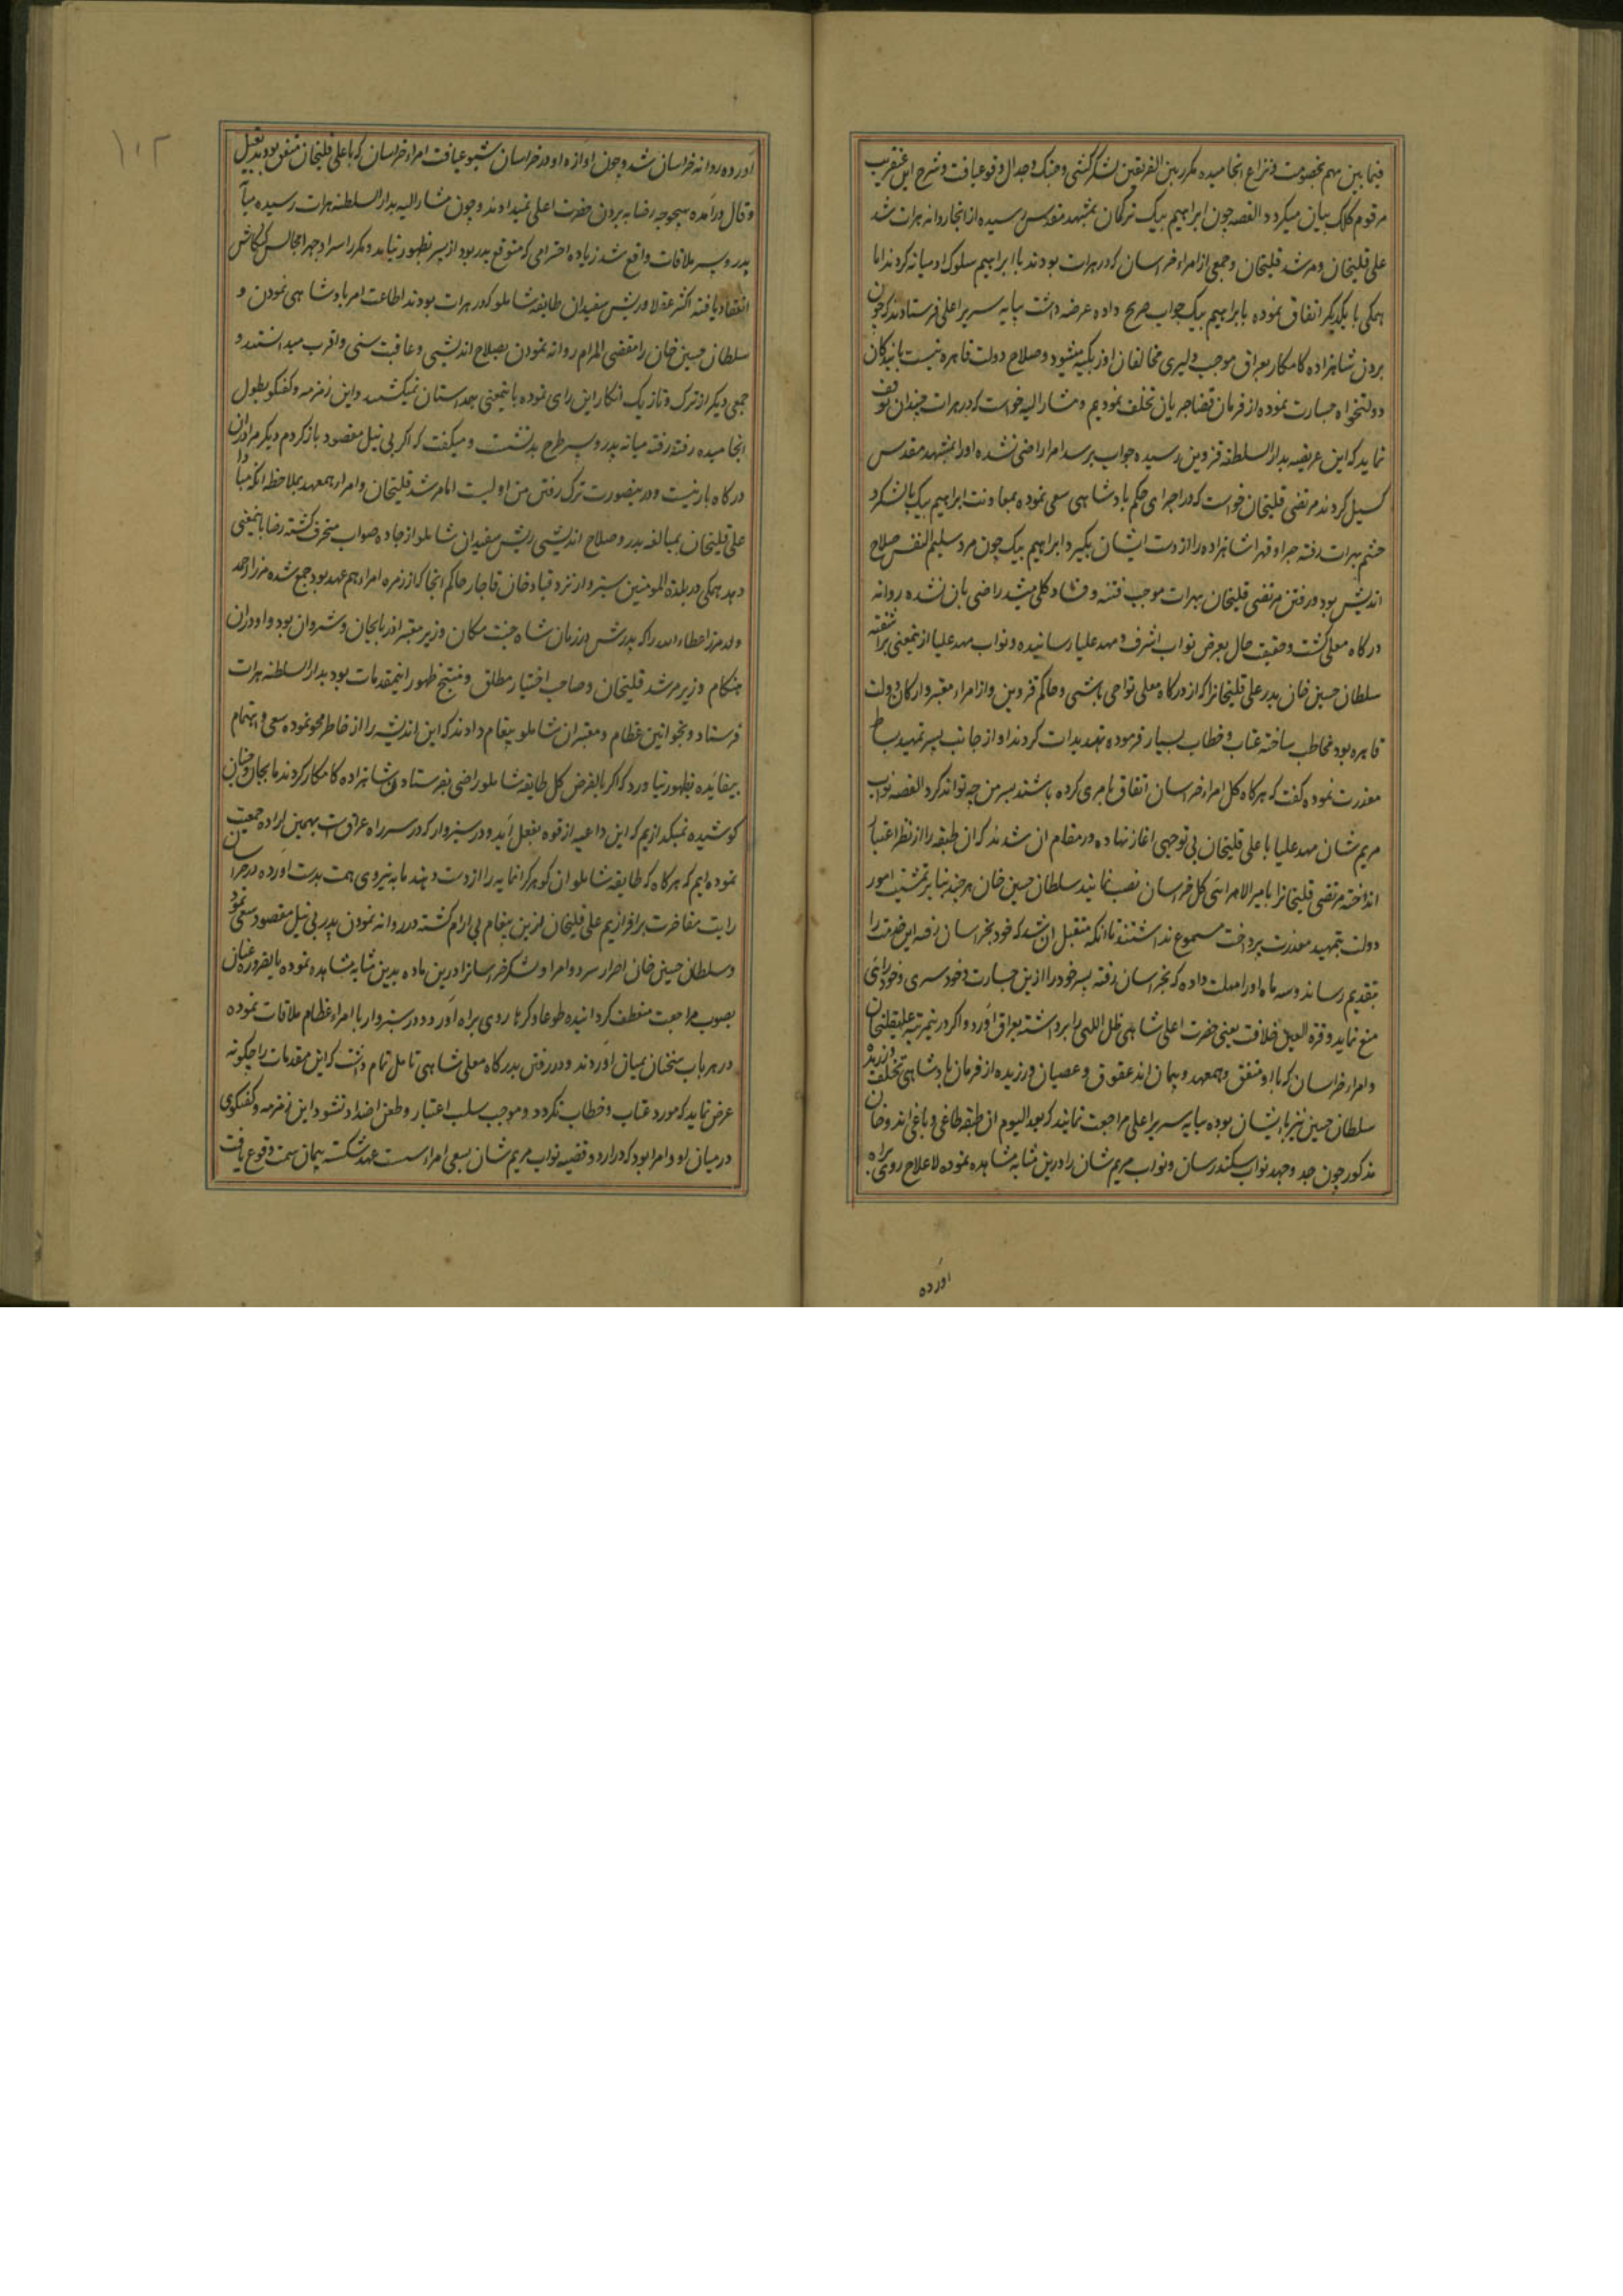 فیمابین بهم بخصومت و نزاع انجامیده مکرر بین الفریقین لشکرکشی و جنک و جدال وقوع یافت و شرح این عنقریب
مرقوم کلک بیان میکردد القصه چون ابراهیم بیک ترکمان بمشهد مقدس رسیده از انجا روانه هرات شد
علی قلیخان و مرشد قلیخان و جمعی از امراء خراسان که در هرات بودند با ابراهیم سلوک ادمیانه کردند اما
همکی با یکدیکر اتفاق نموده بابراهیم بیک جواب صریح داده عرضه داشت بپایه سریر اعلی فرستادند که چون
بردن شاهزاده کامکار بعراق موجب دلیری مخالفان اوزبکیه میشود و صلاح دولت قاهره نیست ما بندکان
دولتخواه جسارت نموده از فرمان قضا جریان تخلف نمودیم و مشار الیه خواست که در هرات چندان توقف
نماید که این عریضه بدار السلطنه قزوین رسیده جواب برسد امرا راضی نشده او را بمشهد مقدس
کسیل کردند مرتضی قلیخان خواست که در اجرای حکم پادشاهی سعی نموده بمعاونت ابراهیم بیک با لشکر و
حشم بهرات رفته جبرا و قهرا شاهزاده را از دست ایشان بکیرد ابراهیم بیک چون مرد سلیم النفس صلاح
اندیش بود و رفتن مرتضی قلیخان بهرات موجب فتنه و فساد کلی میشد راضی بان نشده روانه
درکاه معلی کشت و حقیقت حال بعرض نواب اشرف و مهد علیا رسانیده و نواب مهد علیا ازینمعنی برآشفته
سلطان حسین خان پدر علی قلیخانرا که از درکاه معلی تواچی باشی و حاکم قزوین و از امراء معتبر و ارکان دولت
قاهره بود مخاطب ساخته عتاب و خطاب بسیار فرموده تهدیدات کردند او از جانب پسر تمهید بساط
معذرت نموده کفت که هرکاه کل امراء خراسان اتفاق بامری کرده باشند پسر من چه تواند کرد القصه نواب
مریم شان مهد علیا با علی قلیخان بی توجهی اغاز نهاده در مقام ان شدند که ان طبقه را از نظر اعتبار
انداخته مرتضی قلیخانرا بامیر الامرائی کل خراسان نصب نمایند سلطان حسین خان هرچند بنا بر تمشیت امور
دولت بتمهید معذرت پرداخت مسموع نداشتند تا انکه متقبل ان شد که خود بخراسان رفته این خدمت را
بتقدیم رساند و سه ماه او را مهلت داده که بخراسان رفته پسر خود را ازین جسارت و خود سری و خود رائی
منع نماید و قرة العین خلافت یعنی حضرت اعلی شاهی ظل اللهی را برداشته بعراق آورد و اکر درینمرتبه علیقلیخان
و امراء خراسان که با او متفق و همعهد و پیمان اند عقوق و عصیان ورزیده از فرمان پادشاهی تخلف ورزند
سلطان حسین نیز با ایشان بوده بپایه سریر اعلی مراجعت نمایند که بعد الیوم ان طبقه طاغی و باغی اند و خان
مذکور چون جد و جهد نواب سکندر شان و نواب مریم شان را درین مثابه مشاهده نموده لاعلاج روی براه
اورده
۱۰۲
آورده روانه خراسان شد و چون اوازه او در خراسان شیوع یافت امراء خراسان که با علی قلیخان متفق بودند بقیل
و قال درآمده بهیچوجه رضا به بردن حضرت اعلی نمیدادند و چون مشار الیه بدار السلطنه هرات رسیده میانه
پدر و پسر ملاقات واقع شد زیاده احترامی که متوقع پدر بود از پسر بظهور نیامد و مکرر اسرار و جهرا مجالس کنکاش
انعقاد یافته اکثر عقلا و ریش سفیدان طایفه شاملو که در هرات بودند اطاعت امر پادشاهی نمودن و
سلطان حسین خان را مقضی المرام روانه نمودن بصلاح اندیشی و عاقبت بینی و اقرب میدانستند و
جمعی دیکر از ترک و تازیک انکار این رای نموده باینمعنی همداستان نمیکشتند و این زمزمه و کفتکو بطول
انجامیده رفته رفته میانه پدر و پسر طرح بدنشست و میکفت که اکر بی نیل مقصود بازکردم دیکر مرا دران
درکاه بار نیست و درینصورت ترک رفتن من اولیست اما مرشد قلیخان و امراء همعهد بملاحظه انکه مبادا
علی قلیخان بمبالغه پدر و صلاح اندیشی ریش سفیدان شاملو از جاده صواب منحرف کشته رضا باینمعنی
دهد همکی در بلدة المومنین سبزوار نزد قباد خان قاجار حاکم انجا که از زمره امراء هم عهد بود جمع شده میرزا احمد
ولد میرزا عطاء الله را که پدرش در زمان شاه جنت مکان وزیر معتبر اذربایجان و شیروان بود و او دران
هنکام وزیر مرشد قلیخان و صاحب اختیار مطلق و منتج ظهور اینمقدمات بود بدار السلطنه هرات
فرستاد و بخوانین عظام و معتبران شاملو پیغام دادند که این اندیشه را از خاطر محو نموده سعی و اهتمام
بیفایده بظهور نیاورد که اکر بالفرض کل طایفه شاملو راضی بفرستادن شاهزاده کامکار کردند ما بجان و جنان
کوشیده نمیکذاریم که این داعیه از قوه بفعل آید و در سبزوار که در سر راه عراق است بهمین اراده جمعیت
نموده ایم که هرکاه که طایفه شاملو ان کوهر کرانمایه را از دست دهند ما به نیروی همت بدست اورده در خراسان
رایت مفاخرت برافرازیم علی قلیخان ازین پیغام بی ارام کشته در روانه نمودن پدر بی نیل مقصود سعی نمود
و سلطان حسین خان اصرار پسر و امرا و لشکر خراسانرا درین ماده بدین مثابه مشاهده نموده بالضروره عنان
بصوب مراجعت منعطف کردانیده طوعا و کرها روی براه آورد و در سبزوار با امراء عظام ملاقات نموده
در هر باب سخنان بمیان آوردند و در رفتن بدرکاه معلی شاهی تامل تمام داشت که این مقدمات را چکونه
عرض نماید که مورد عتاب و خطاب نکردد و موجب سلب اعتبار و طعن اضداد نشود این زمزمه و کفتکوی
در میان او و امرا بود که در اردو قضیه نواب مریم شان بسعی امراء سست عهد شکسته پیمان سمت وقوع یافت